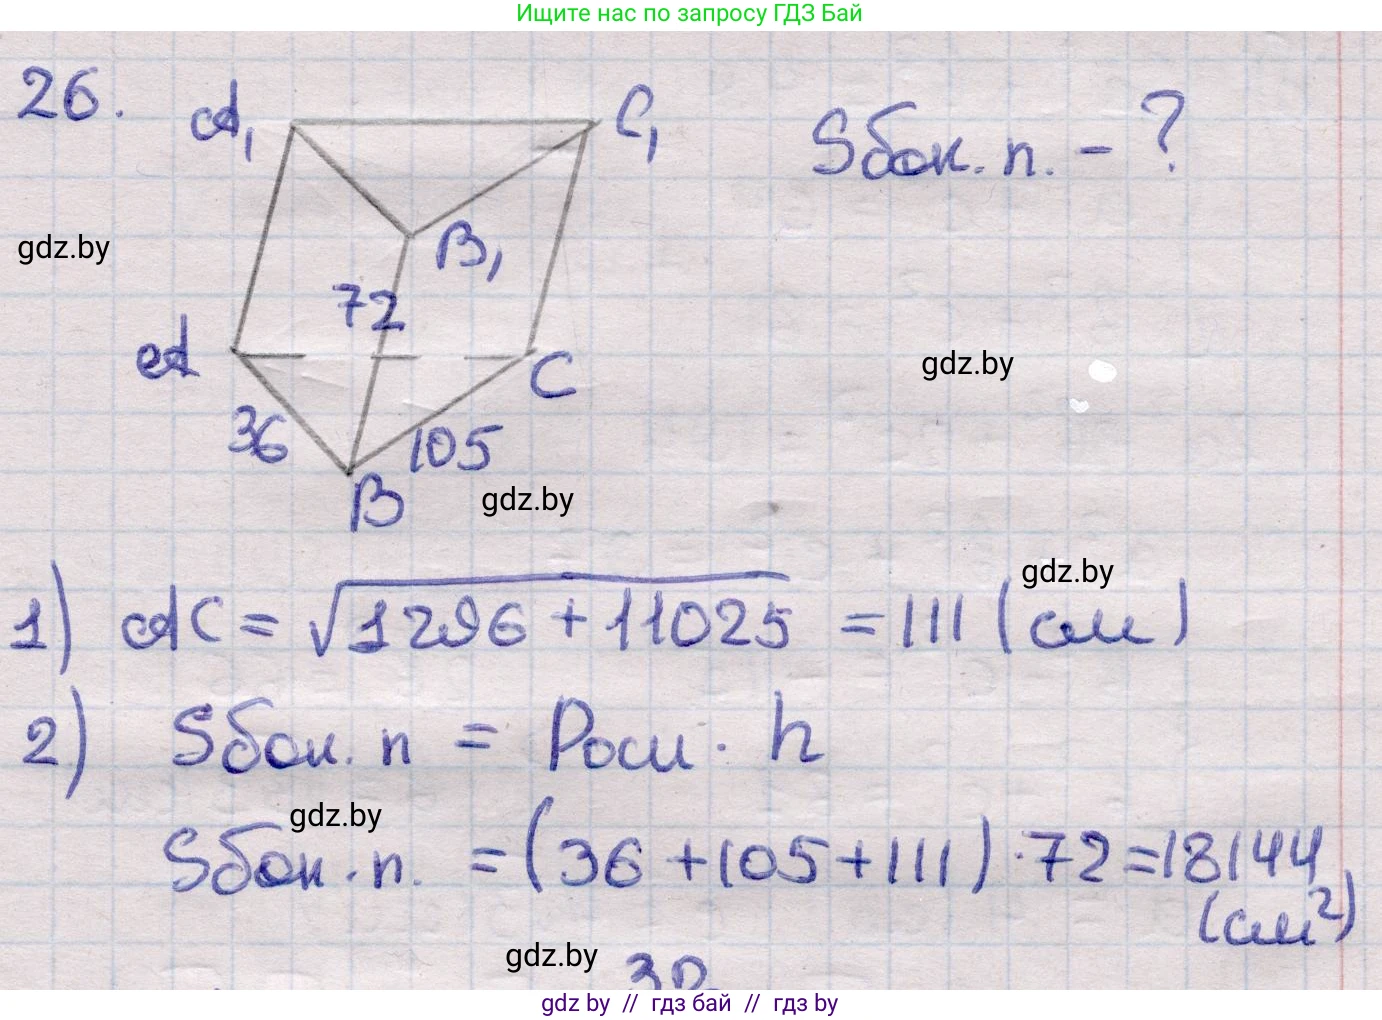 Ищите нас по запросу ГДЗ Бай
26.
A₁
C₁
Sбок. п. - ?
gdz.by
B₁
72
A
C
gdz.by
36
105
gdz.by
B
gdz.by
1) AC = √1296 + 11025 = 111 (см)
2) Sбок. п = Pосн · h
gdz.by
Sбок. п. = (36 + 105 + 111) · 72 = 18144
(см²)
gdz.by
gdz by // гдз бай // гдз by